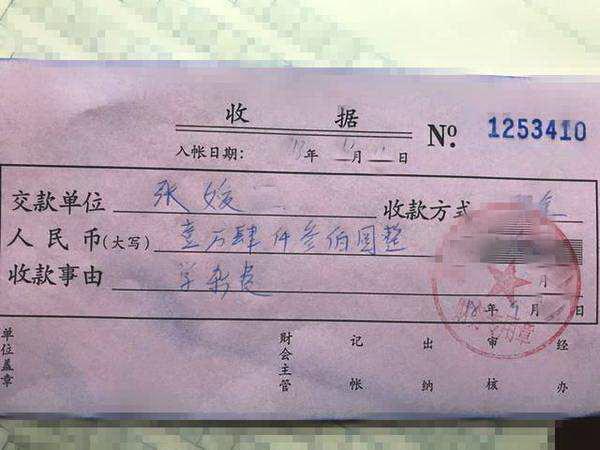 收据
No. 1253410
入帐日期: 17年 月 日
交款单位 张媛 收款方式
人民币(大写) 壹万肆仟叁佰圆整
收款事由 学杂费
月
年 月 日
单位盖章 财会主管 记帐 出纳 审核 经办